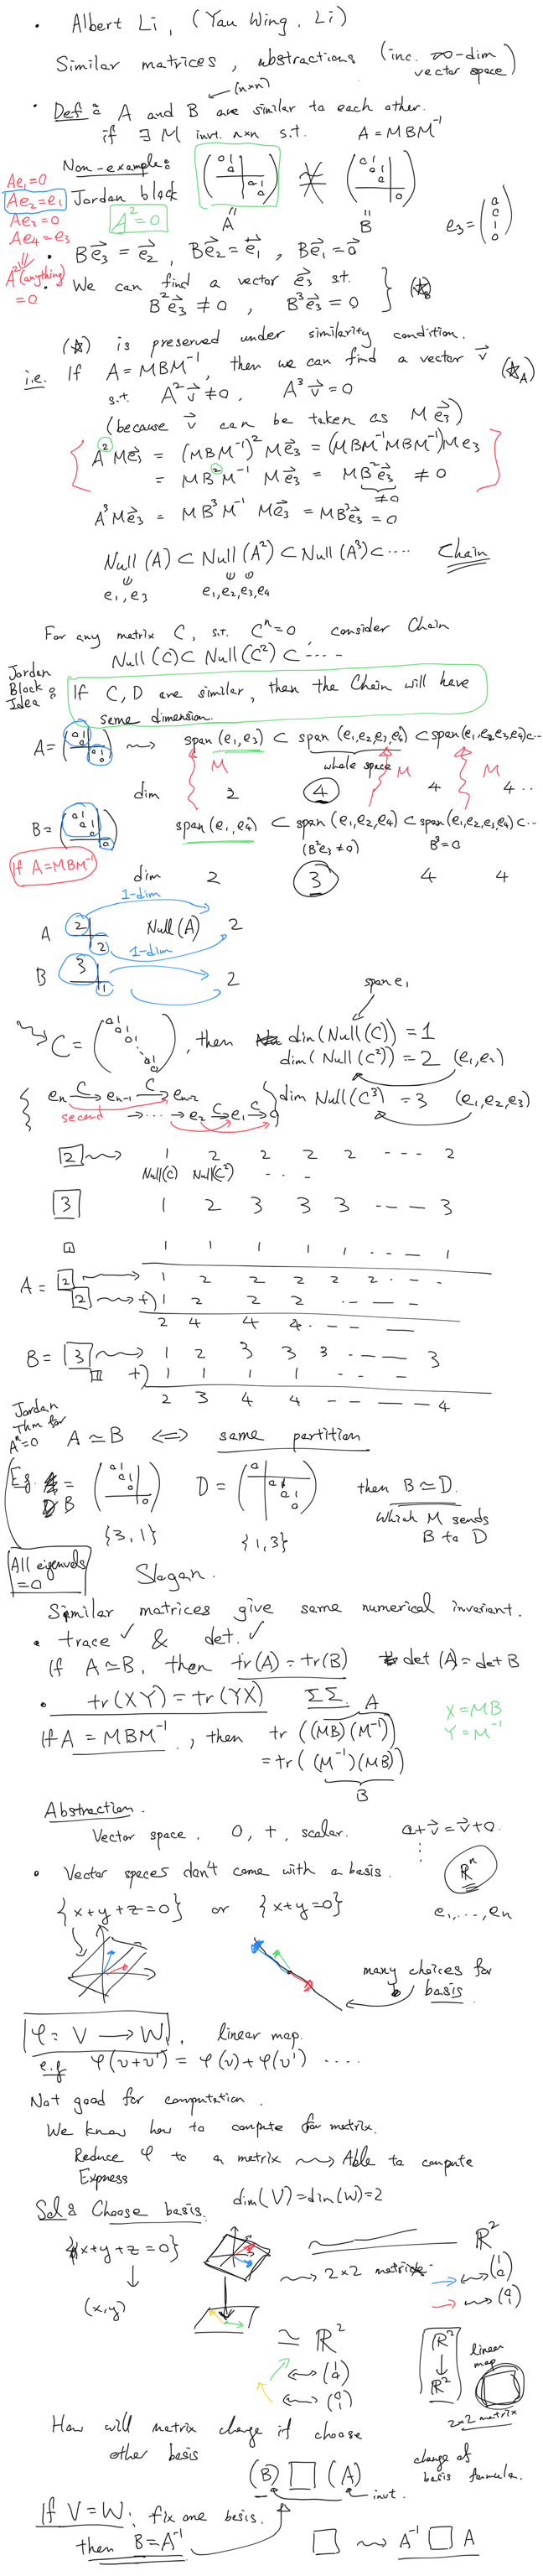 • Albert Li, (Yau Wing, Li)
Similar matrices, abstractions (inc. ∞-dim vector space)
(n×n)
• Def: A and B are similar to each other.
if ∃ M invt. n×n s.t. A = MBM⁻¹
Non-example:
Jordan block
A
B
A² = 0
Ae₁=0
Ae₂=e₁
Ae₃=0
Ae₄=e₃
A²(anything) = 0
• Be⃗₃ = e⃗₂, Be⃗₂ = e⃗₁, Be⃗₁ = 0⃗
• We can find a vector e⃗₃ st.
B²e⃗₃ ≠ 0, B³e⃗₃ = 0
(☆) is preserved under similarity condition.
i.e. If A = MBM⁻¹, then we can find a vector v⃗ (☆A)
s.t. A²v⃗ ≠ 0, A³v⃗ = 0
(because v⃗ can be taken as Me⃗₃)
A²Me⃗₃ = (MBM⁻¹)² Me⃗₃ = (MBM⁻¹MBM⁻¹)Me₃
= MB²M⁻¹ Me⃗₃ = MB²e⃗₃ ≠ 0
≠0
A³Me⃗₃ = MB³M⁻¹ Me⃗₃ = MB³e⃗₃ = 0
Null(A) ⊂ Null(A²) ⊂ Null(A³) ⊂ ···· Chain
e₁,e₃ e₁,e₂,e₃,e₄
For any matrix C, s.t. Cⁿ=0, consider Chain
Null(C) ⊂ Null(C²) ⊂ ····
Jordan Block Idea:
If C, D are similar, then the Chain will have
same dimension.
A = span(e₁,e₃) ⊂ span(e₁,e₂,e₃,e₄) ⊂ span(e₁,e₂,e₃,e₄) ⊂ ···
whole space
M M M
dim 2 4 4 4 ··
B = span(e₁,e₄) ⊂ span(e₁,e₂,e₄) ⊂ span(e₁,e₂,e₃,e₄) ⊂ ···
(B²e₃≠0) B³=0
If A = MBM⁻¹
dim 2 3 4 4
1-dim
A 2 2 Null(A) 2
1-dim
B 3 1 2
span e₁
C = , then dim(Null(C)) = 1
dim(Null(C²)) = 2 (e₁,e₂)
eₙ →C eₙ₋₁ →C eₙ₋₂
dim Null(C³) = 3 (e₁,e₂,e₃)
second → ··· → e₂ →C e₁ →C 0
2 1 2 2 2 2 --- 2
Null(C) Null(C²) - - -
3 1 2 3 3 3 --- 3
1 1 1 1 1 1 --- 1
A = 2 1 2 2 2 2 2 ---
2 +) 1 2 2 2 ---
2 4 4 4 ---
B = 3 1 2 3 3 3 --- 3
1 +) 1 1 1 1 ---
2 3 4 4 --- 4
Jordan Thm for Aⁿ=0
A ≃ B ⟺ same partition
Eg. B = D = then B ≃ D.
Which M sends B to D
{3,1} {1,3}
All eigenvals = 0
Slogan.
Similar matrices give same numerical invariant.
• trace ✓ & det. ✓
If A ≃ B, then tr(A) = tr(B) det(A) = det B
• tr(XY) = tr(YX) ΣΣ.
A
X = MB
Y = M⁻¹
If A = MBM⁻¹, then tr((MB)(M⁻¹))
= tr((M⁻¹)(MB))
B
Abstraction.
Vector space. 0, +, scalar. 0+v⃗ = v⃗+0.
• Vector spaces don't come with a basis. ℝⁿ
{x+y+z=0} or {x+y=0} e₁,...,eₙ
many choices for basis
φ: V → W, linear map.
e.g. φ(v+v') = φ(v)+φ(v') ····
Not good for computation.
We know how to compute for matrix.
Reduce φ to a matrix ⇝ Able to compute
Express
Sol: Choose basis. dim(V)=dim(W)=2
{x+y+z=0} ℝ²
⇝ 2×2 matrix
(x,y)
≃ ℝ²
ℝ² ↓ ℝ² linear map
2×2 matrix
How will matrix change if choose
other basis
change of basis formula.
(B) □ (A)
invt.
If V = W: fix one basis.
then B = A⁻¹
□ ⇝ A⁻¹ □ A